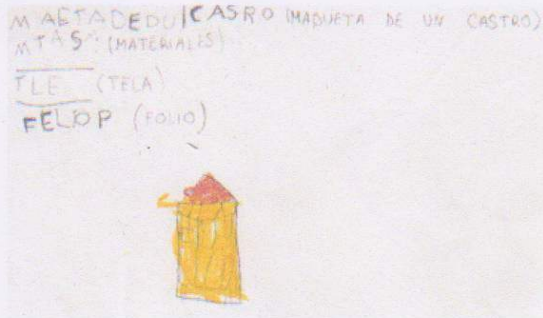 MAETADEDU|CASRO (MAQUETA DE UN CASTRO)
MTAS (MATERIALES)
TLE (TELA)
FELOP (FOLIO)